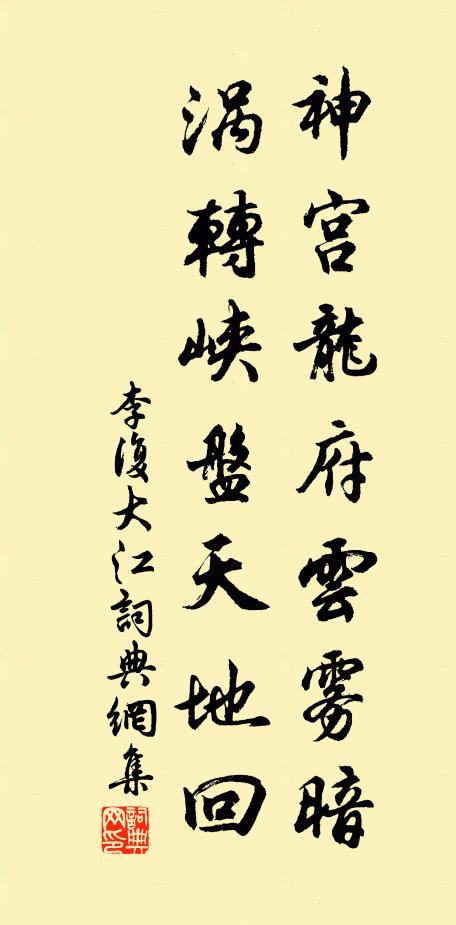 神宫龍府雲雾暗
渦轉峽盤天地回
李復大江詞典網集
詞典网印